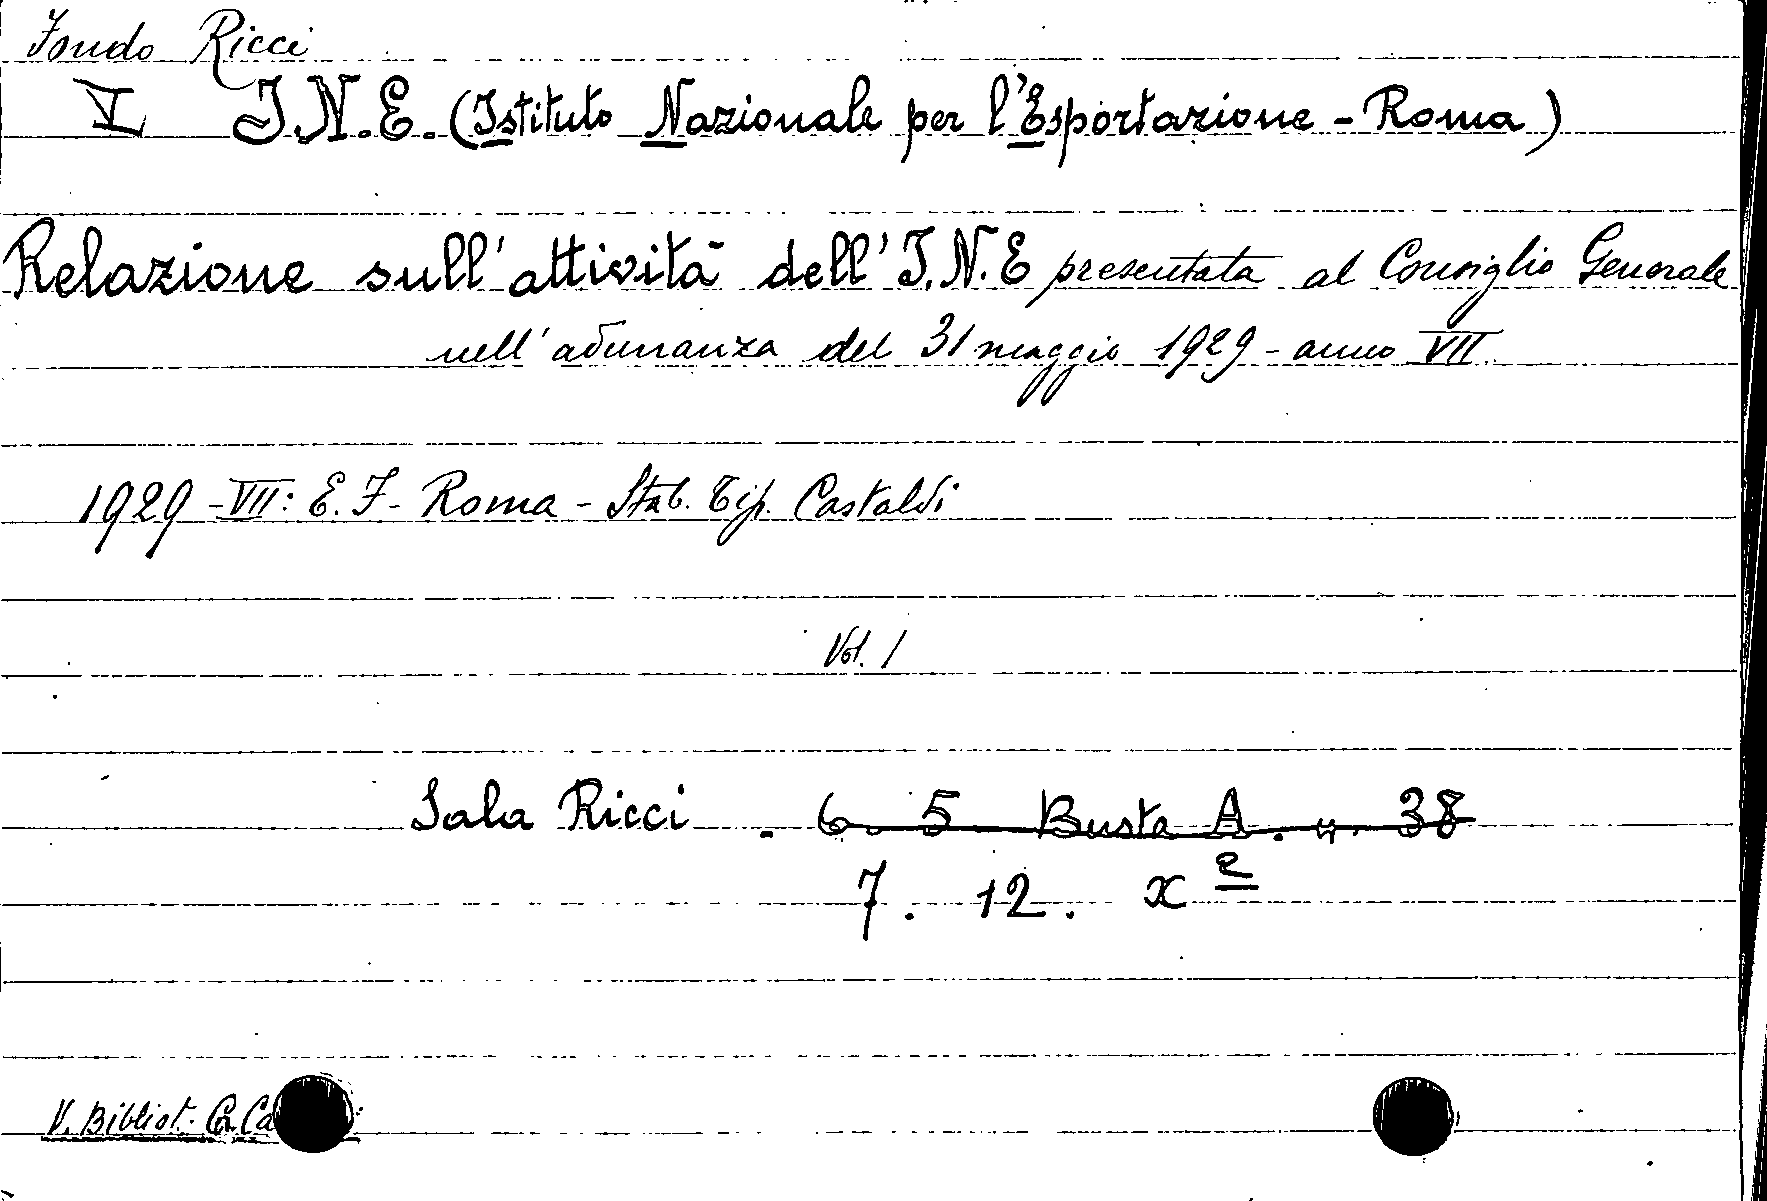 Fondo Ricci
V I.N.E. (Istituto Nazionale per l'Esportazione - Roma)
Relazione sull'attività dell'I.N.E presentata al Consiglio Generale
nell'adunanza del 31 maggio 1929 - anno VII.
1929 - VII: E. F. - Roma - Stab. Tip. Castaldi
Vol. 1
Sala Ricci . 6. 5 Busta A. n. 38
7. 12. x
V. Bibliot.